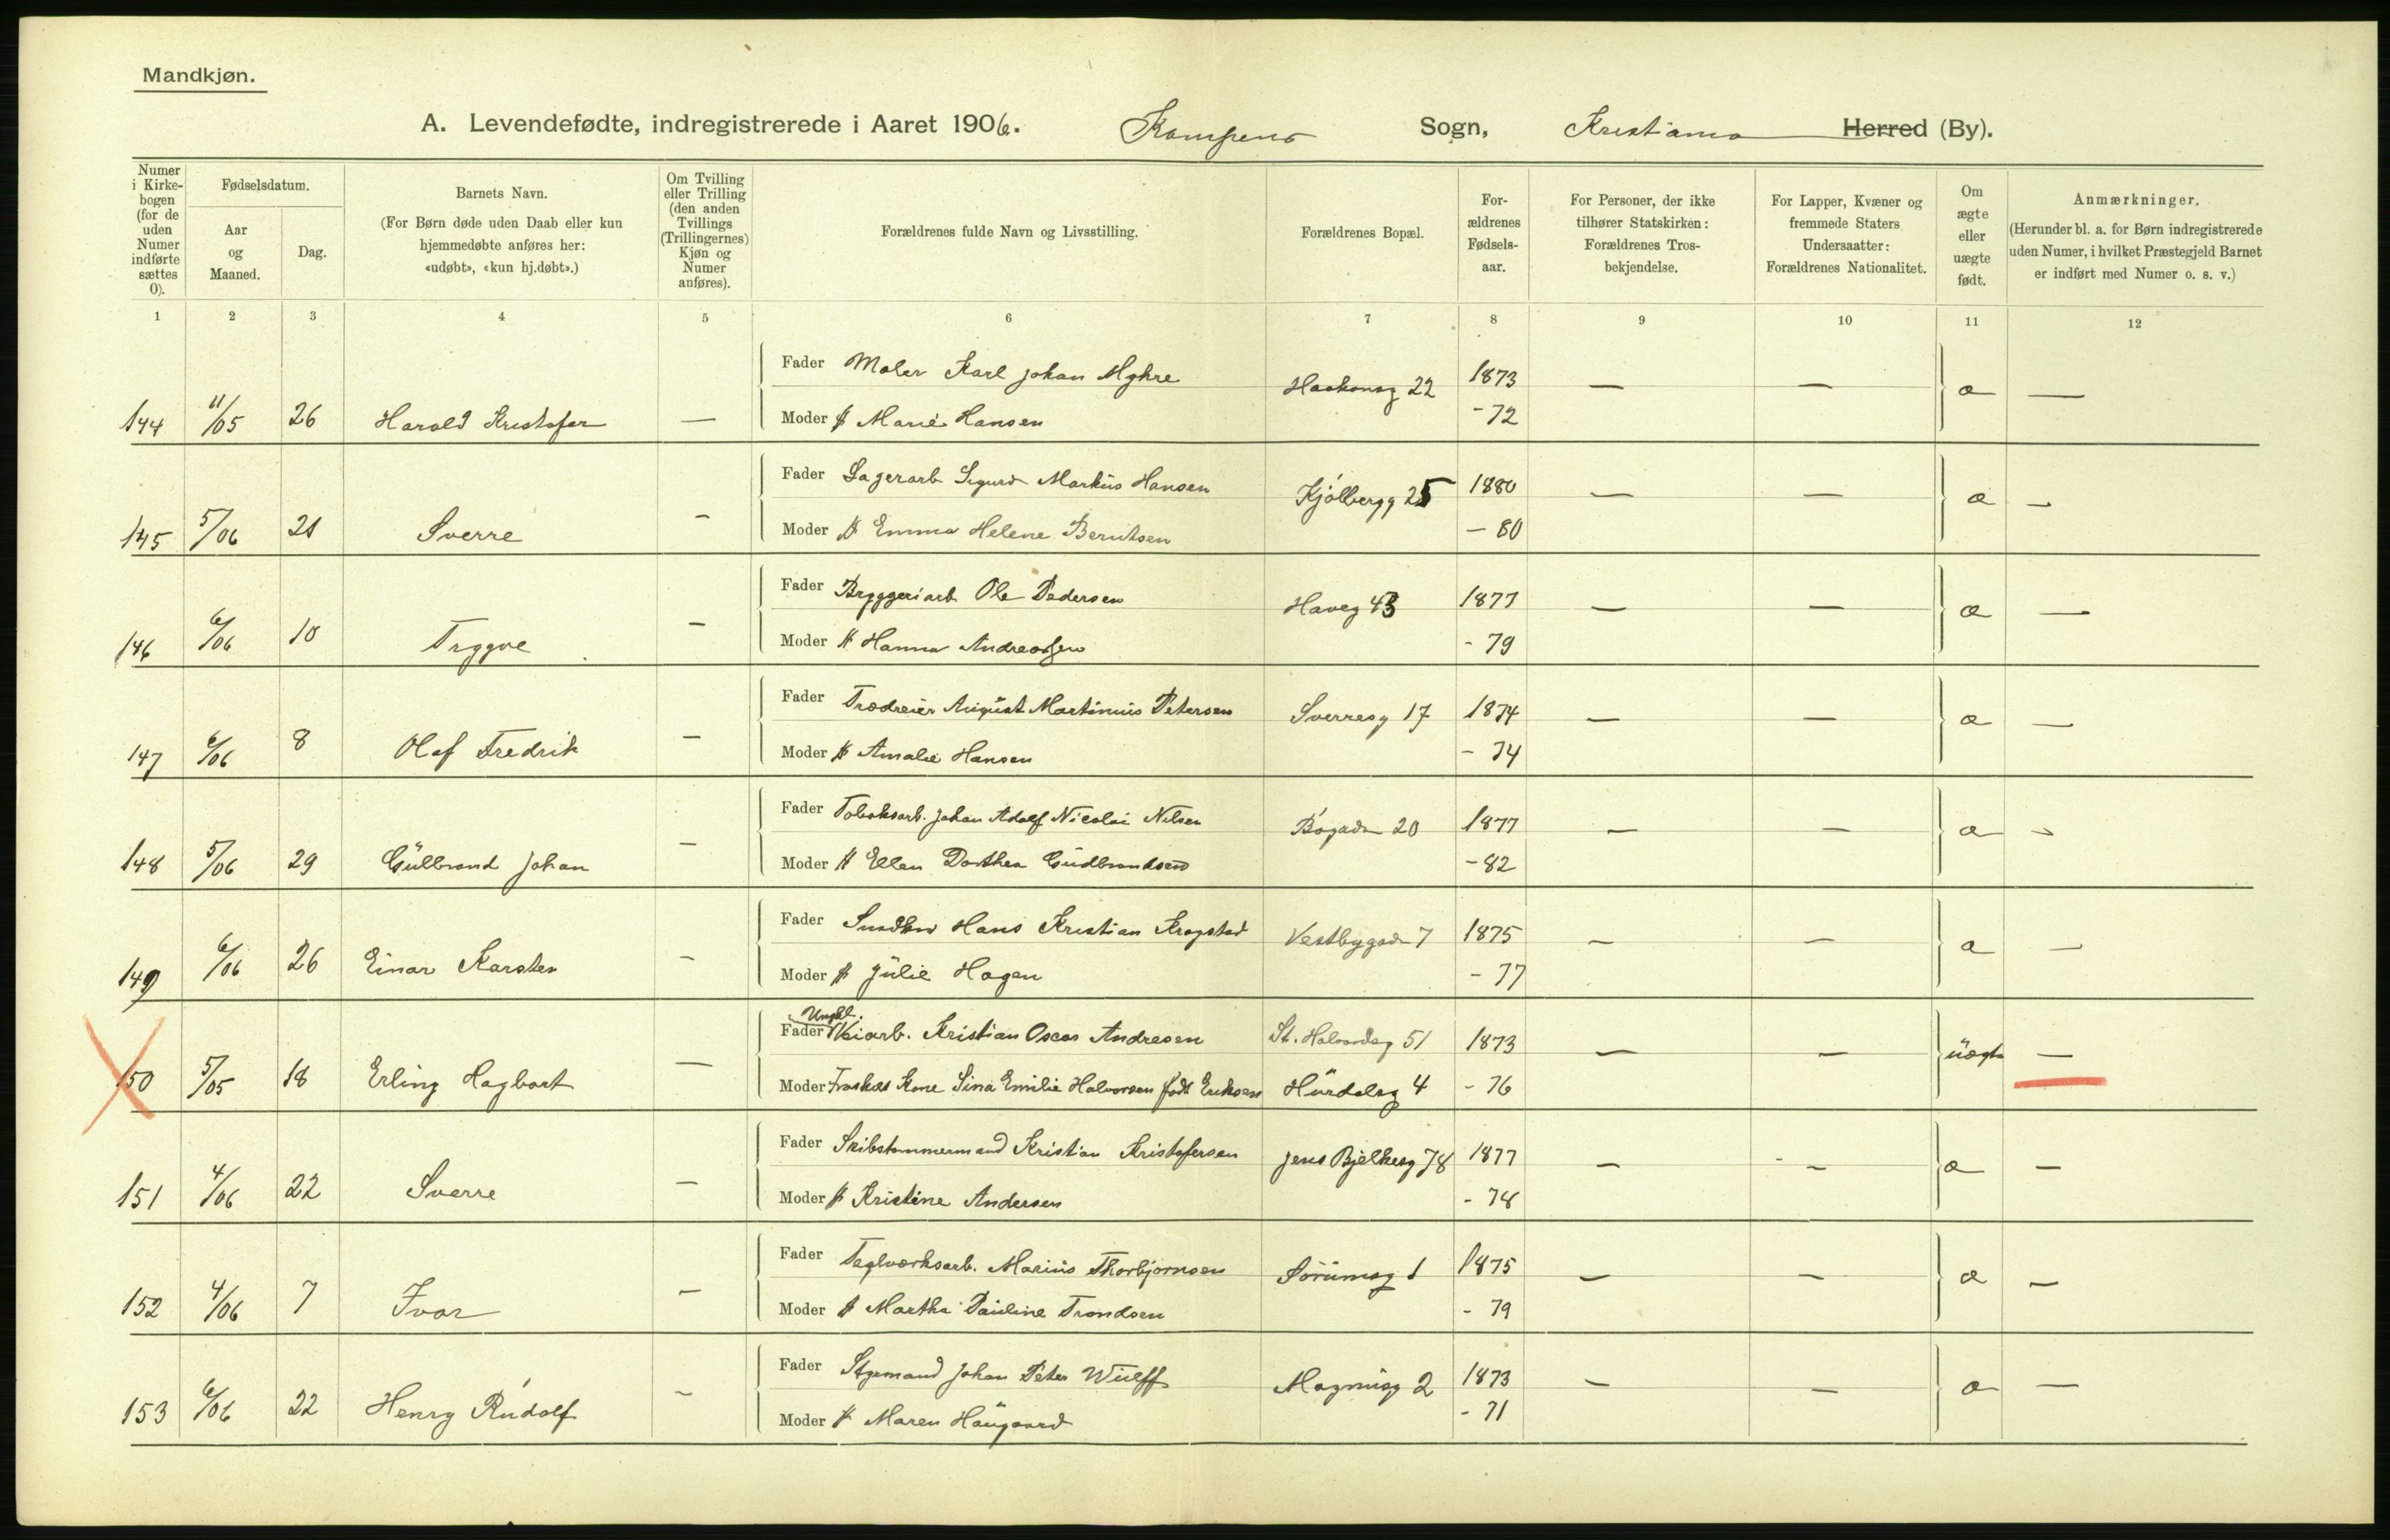 Mandkjøn.
A. Levendefødte, indregistrerede i Aaret 1906. Kampens Sogn, Kristiania Herred (By).
Numer i Kirkebogen (for de uden Numer indførte sættes 0).
Fødselsdatum.
Aar og Maaned.
Dag.
Barnets Navn.
(For Børn døde uden Daab eller kun hjemmedøbte anføres her: «udøbt», «kun hj.døbt».)
Om Tvilling eller Trilling (den anden Tvillings (Trillingernes) Kjøn og Numer anføres).
Forældrenes fulde Navn og Livsstilling.
Forældrenes Bopæl.
Forældrenes Fødselsaar.
For Personer, der ikke tilhører Statskirken: Forældrenes Trosbekjendelse.
For Lapper, Kvæner og fremmede Staters Undersaatter: Forældrenes Nationalitet.
Om ægte eller uægte født.
Anmærkninger.
(Herunder bl. a. for Børn indregistrerede uden Numer, i hvilket Præstegjeld Barnet er indført med Numer o. s. v.)
1 2 3 4 5 6 7 8 9 10 11 12
Fader Maler Karl Johan Myhre Haakonsg 22 1873 — — æ —
144 11/05 26 Harald Kristofer — Moder H Marie Hansen - 72
Fader Lagerarb Sigurd Markus Hansen Kjølbergg 25 1880 — — æ —
145 5/06 21 Sverre — Moder H Emma Helene Berntsen - 80
Fader Bryggeriarb Ole Pedersen Haveg 43 1877 — — æ —
146 6/06 10 Trygve — Moder H Hanna Andreassen - 79
Fader Trædreier August Martinius Petersen Sverresg 17 1874 — — æ —
147 6/06 8 Olaf Fredrik — Moder H Amalie Hansen - 74
Fader Tobaksarb. Johan Adolf Nicolai Nilsen Bøgaden 20 1877 — — æ —
148 5/06 29 Gulbrand Johan — Moder H Ellen Dorthea Gudbrandsen - 82
Fader Snedker Hans Kristian Krogstad Vestbygaden 7 1875 — — æ —
149 6/06 26 Einar Karsten — Moder H Julie Hagen - 77
Ungkl.
Fader Veiarb. Kristian Oscar Andresen St. Halvardsg 51 1873 — — uægte —
150 5/05 18 Erling Hagbart — Moder Fraskilt Kone Sina Emilie Halvorsen født Eriksen Hurdalsg 4 - 76
Fader Skibstømmermand Kristian Kristofersen Jens Bjelkesg 78 1877 — — æ —
151 4/06 22 Sverre — Moder H Kristine Andersen - 78
Fader Teglværksarb. Marius Thorbjørnsen Sørumsg 1 1875 — — æ —
152 4/06 7 Ivar — Moder H Martha Pauline Trondsen - 79
Fader Styrmand Johan Peter Wulff Magnusg 2 1873 — — æ —
153 6/06 22 Henry Rudolf — Moder H Maren Haugaard - 71